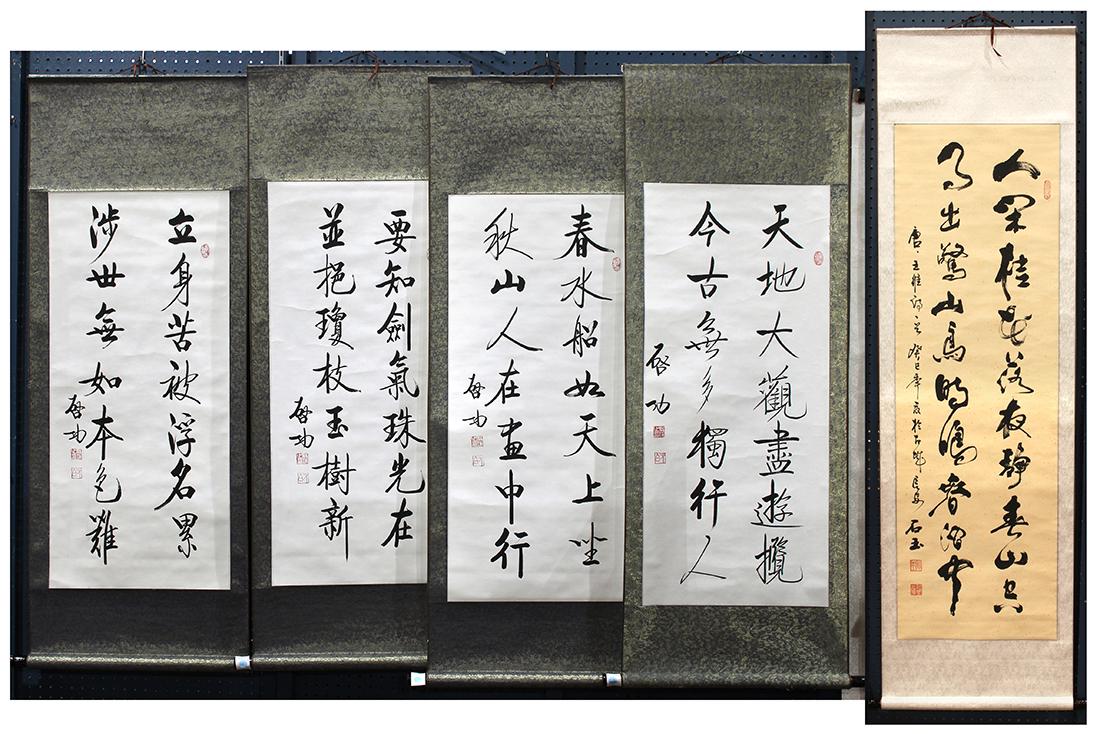 人閑桂花落夜静春山空
月出驚山鳥時鳴春澗中
唐·王維詩 癸巳年
石玉
天地大觀盡遊攬
今古無多獨行人
啓功
春水船如天上坐
秋山人在画中行
啓功
要知劍氣珠光在
並挹瓊枝玉樹新
啓功
立身苦被浮名累
涉世無如本色難
啓功